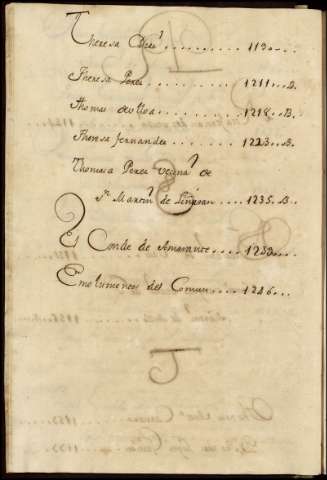 Theresa Diez . . . . . . . . . . 1190. . .
Theresa Perez . . . . . . . . 1211. . . B.
Thomas de Ulloa . . . . . . . 1218. . B.
Thomasa fernandez . . . . . 1223. . . B.
Thomasa Perez Vezina de
Sn. Martin de . . . . 1235. . B.
El Conde de Amarante. . . . 1239. . .
Emolumentos del Comun. . . . 1246. . .